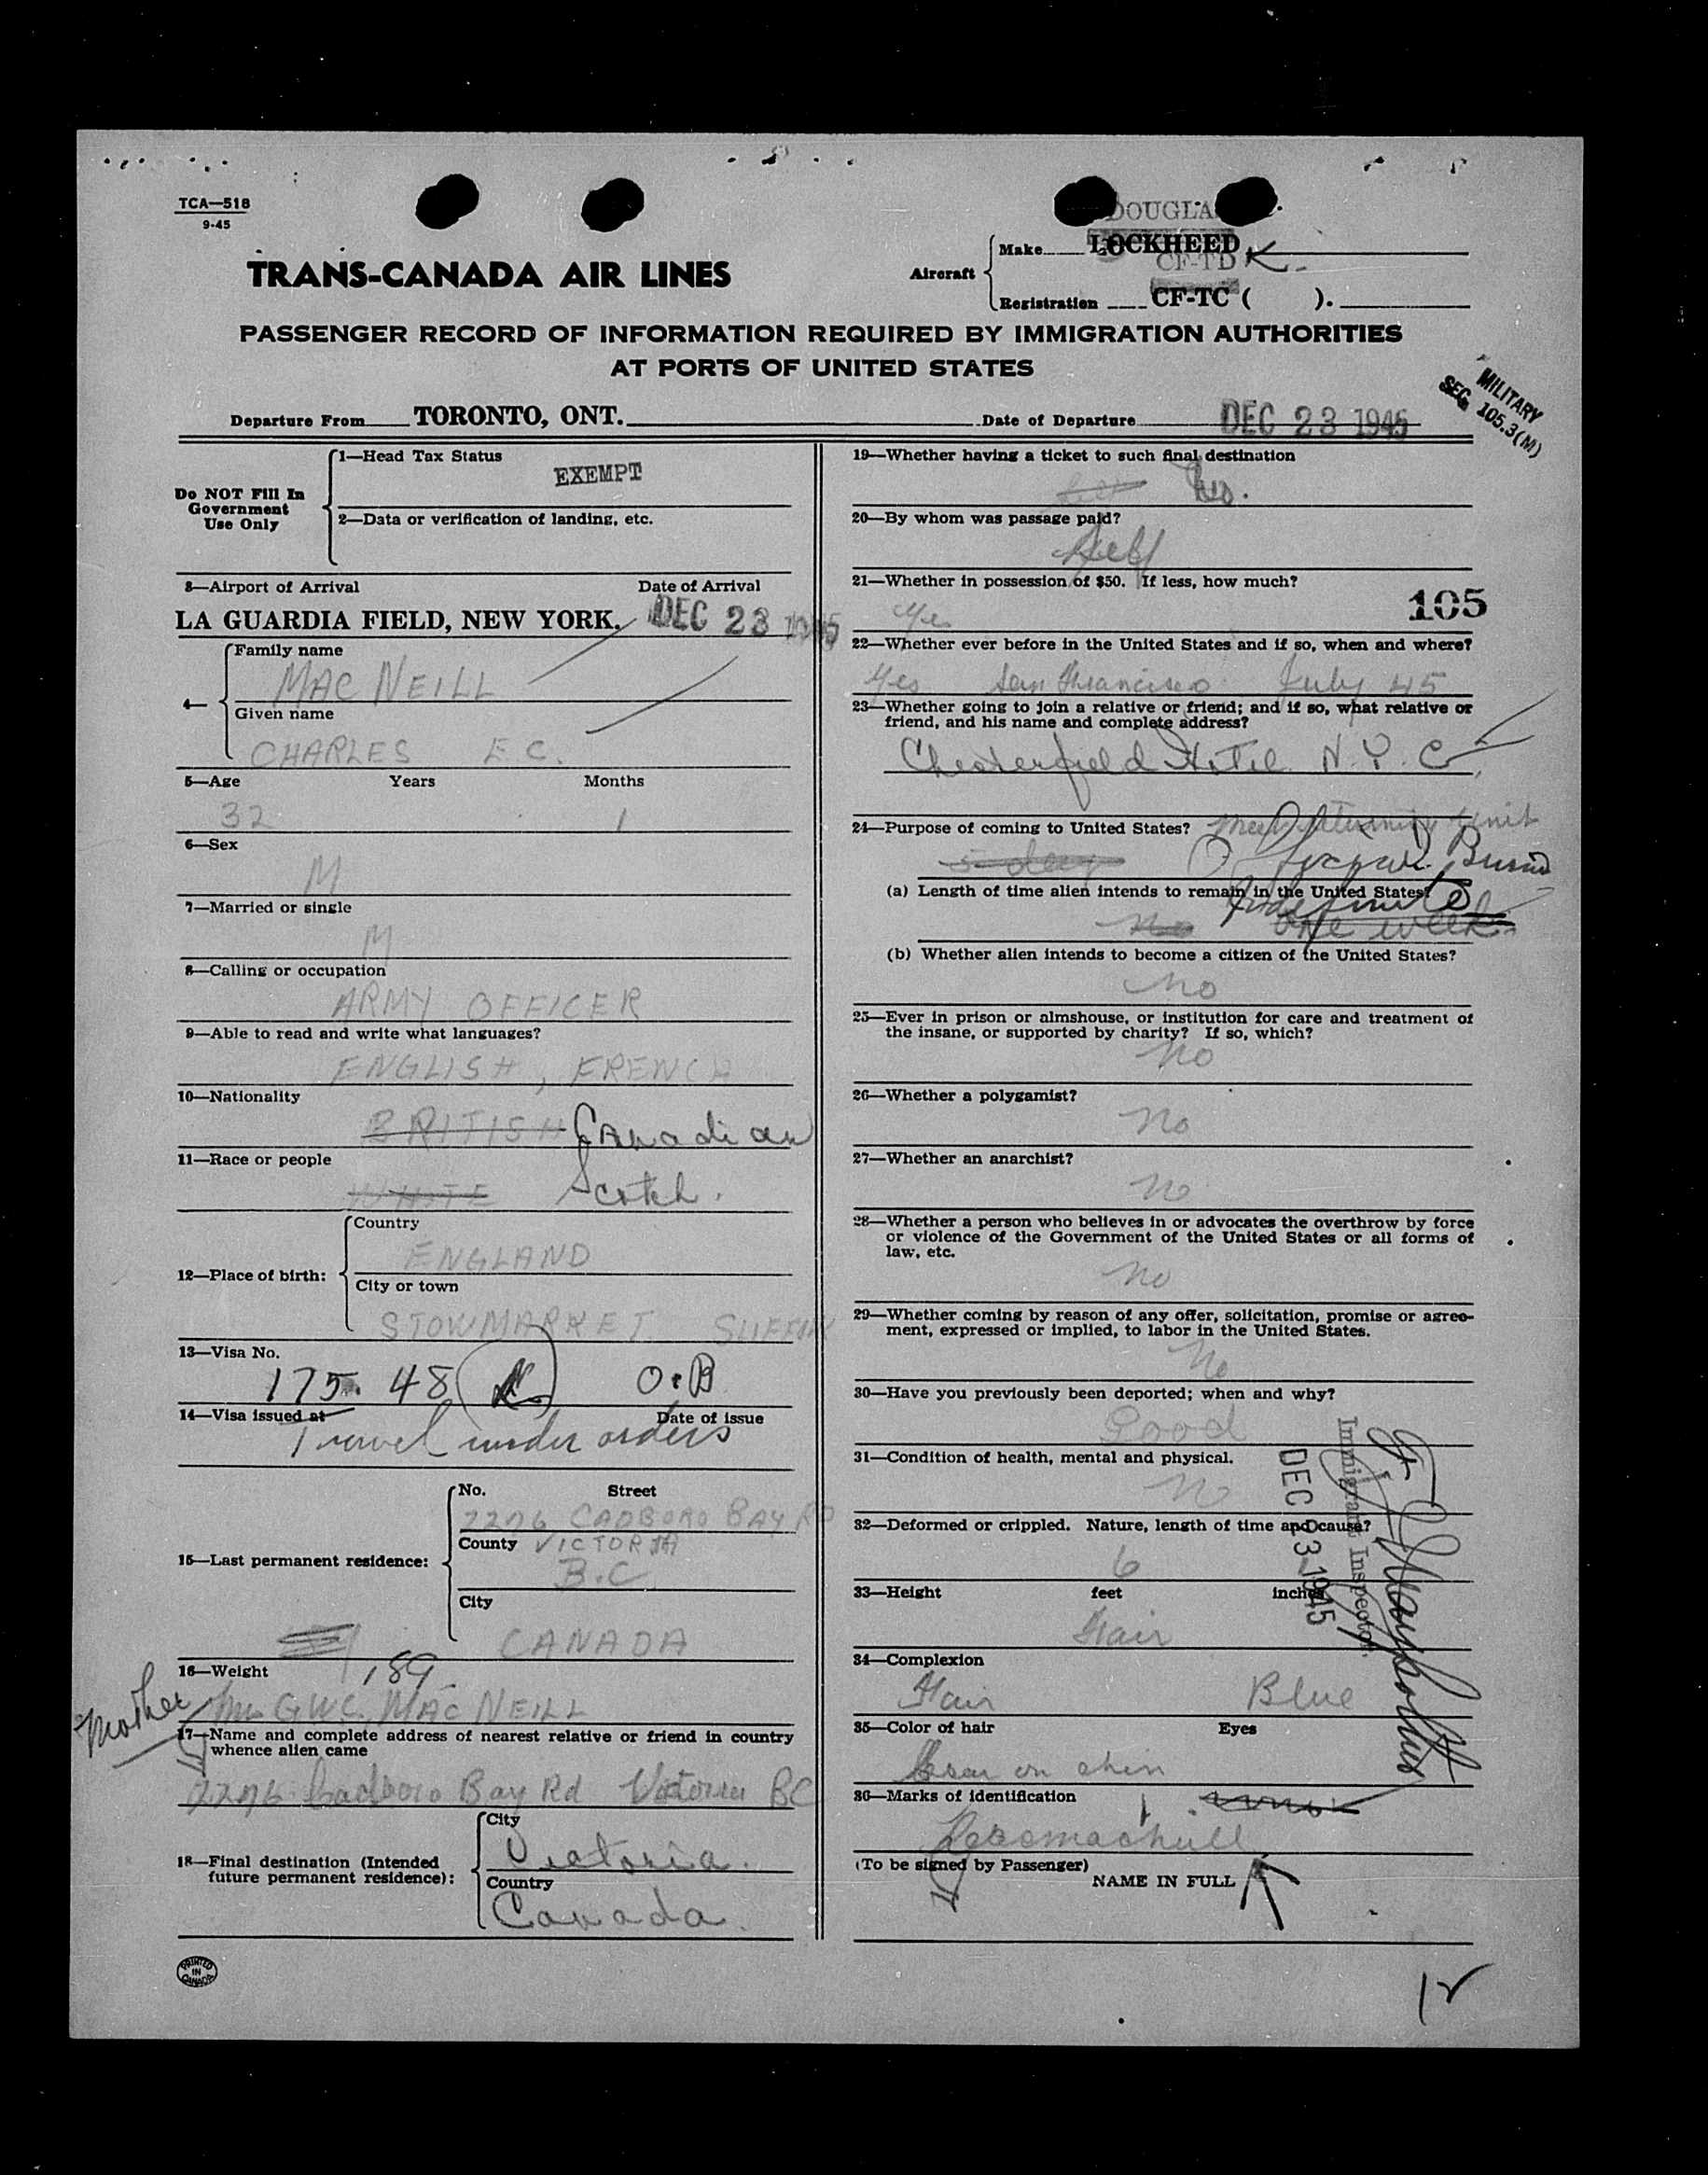 TCA—518
9-45
DOUGLA
TRANS-CANADA AIR LINES
Aircraft
Make LOCKHEED
CF-TD K
Registration CF-TC ( ).
PASSENGER RECORD OF INFORMATION REQUIRED BY IMMIGRATION AUTHORITIES
AT PORTS OF UNITED STATES
MILITARY
SEC. 105.3(M)
Departure From TORONTO, ONT. Date of Departure DEC 23 1945
Do NOT Fill In
Government
Use Only
1—Head Tax Status
EXEMPT
2—Data or verification of landing, etc.
3—Airport of Arrival Date of Arrival
LA GUARDIA FIELD, NEW YORK. DEC 23 1945
4—
Family name
MAC NEILL
Given name
CHARLES E.C.
5—Age Years Months
32 1
6—Sex
M
7—Married or single
M
8—Calling or occupation
ARMY OFFICER
9—Able to read and write what languages?
ENGLISH, FRENCH
10—Nationality
BRITISH Canadian
11—Race or people
WHITE Scotch.
12—Place of birth:
Country
ENGLAND
City or town
STOWMARKET SUFFOLK
13—Visa No.
175. 48 O.B
14—Visa issued at Date of issue
Travel under orders
15—Last permanent residence:
No. Street
2276 CADBORO BAY RD
County VICTORIA
B.C
City
CANADA
16—Weight 189
Mother Mrs G.W.C. MAC NEILL
17—Name and complete address of nearest relative or friend in country
whence alien came
2276 Cadboro Bay Rd Victoria BC
18—Final destination (Intended
future permanent residence):
City
Victoria.
Country
Canada.
PRINTED
IN
CANADA
19—Whether having a ticket to such final destination
20—By whom was passage paid?
Self
21—Whether in possession of $50. If less, how much?
105
Yes
22—Whether ever before in the United States and if so, when and where?
Yes San Francisco July 45
23—Whether going to join a relative or friend; and if so, what relative or
friend, and his name and complete address?
Chesterfield Hotel N.Y.C
24—Purpose of coming to United States?
Official
(a) Length of time alien intends to remain in the United States?
Indefinite
no one week
(b) Whether alien intends to become a citizen of the United States?
no
25—Ever in prison or almshouse, or institution for care and treatment of
the insane, or supported by charity? If so, which?
no
26—Whether a polygamist?
no
27—Whether an anarchist?
no
28—Whether a person who believes in or advocates the overthrow by force
or violence of the Government of the United States or all forms of
law, etc.
no
29—Whether coming by reason of any offer, solicitation, promise or agree-
ment, expressed or implied, to labor in the United States.
no
30—Have you previously been deported; when and why?
Good
31—Condition of health, mental and physical.
32—Deformed or crippled. Nature, length of time and cause?
6
33—Height feet inches
Fair
34—Complexion
Fair Blue
35—Color of hair Eyes
Scar on chin
36—Marks of identification
(To be signed by Passenger)
NAME IN FULL
DEC 23 1945
Immigrant Inspector.
12